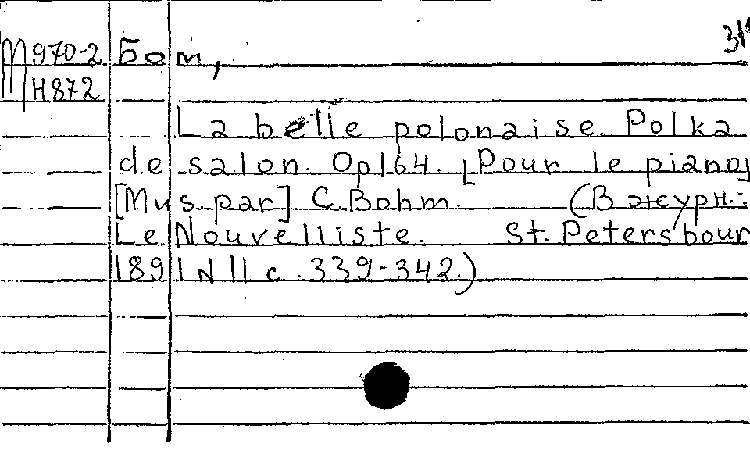 М970-2 Бом,
H872
La belle polonaise. Polka
de salon. Op164. [Pour le piano]
[Mus. par] C. Bohm. (В журн.:
Le Nouvelliste. St. Petersbour
1891 N 11 с. 339-342.)